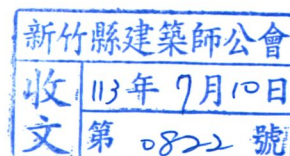 新竹縣建築師公會
收文
113年7月10日
第0822號